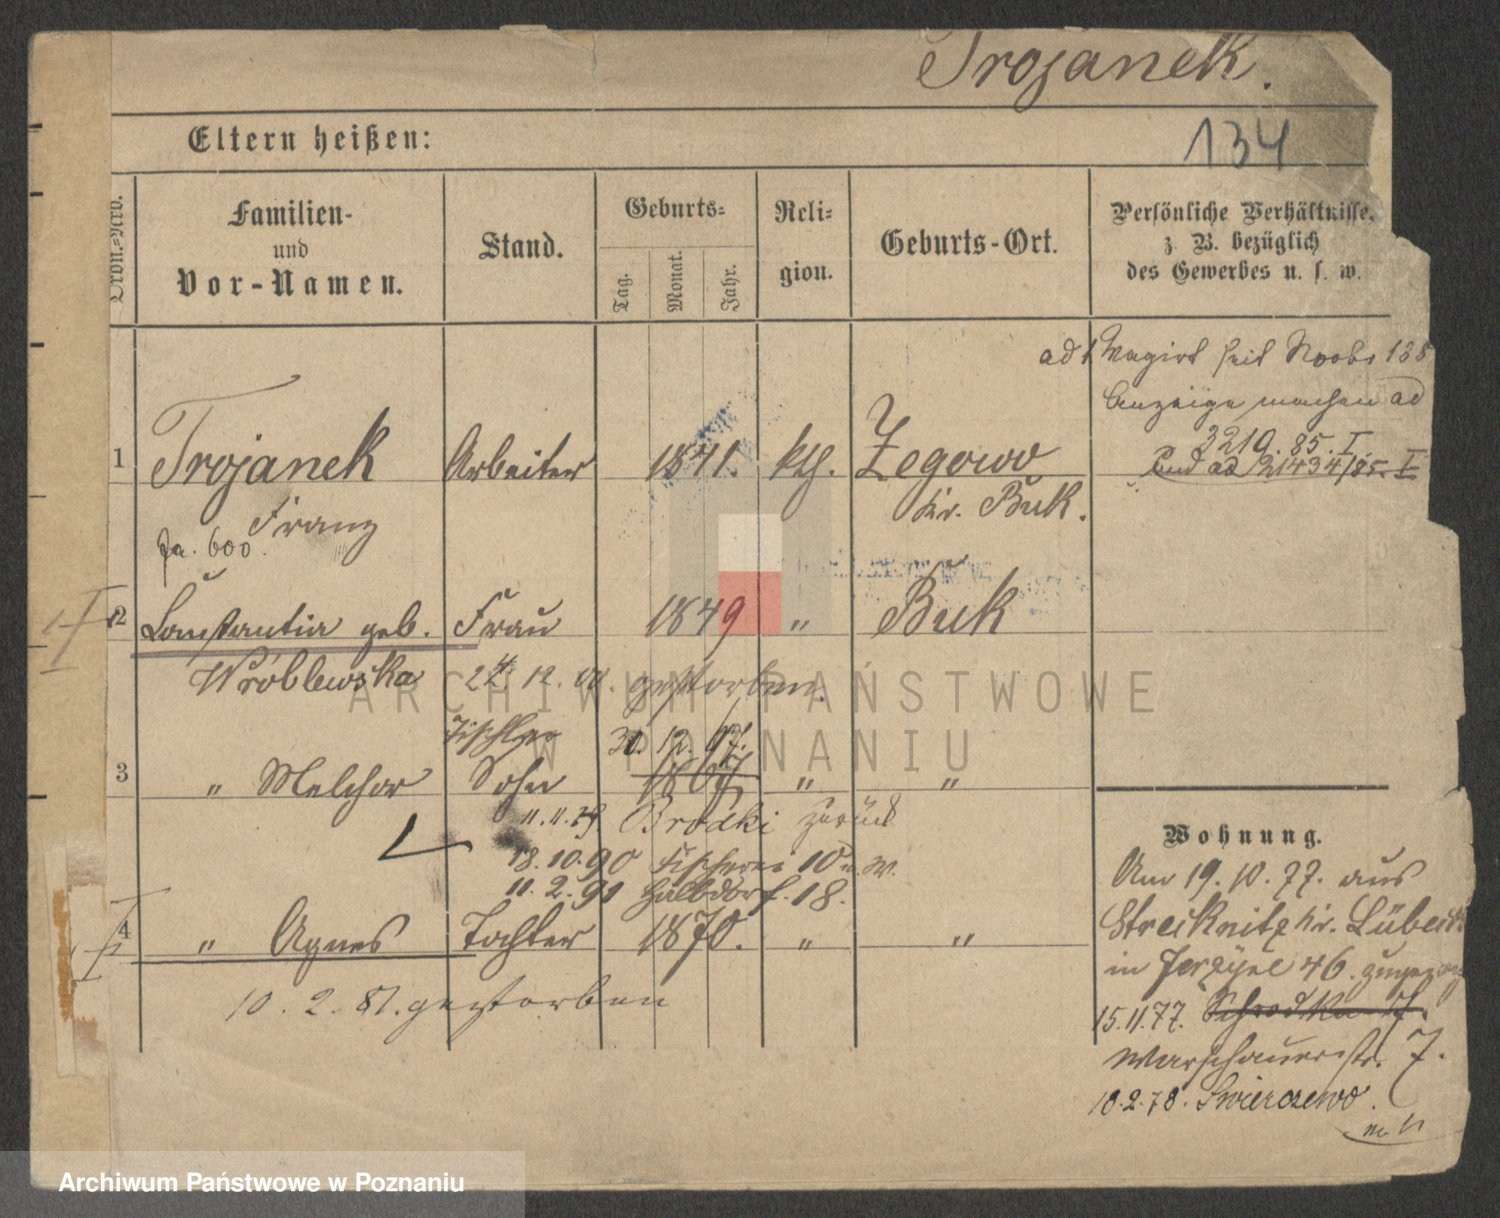 Trojanek.
134
Eltern heißen:
Ordn.=Nro.
Familien-
und
Vor-Namen.
Stand.
Geburts=
Tag.
Monat.
Jahr.
Reli=
gion.
Geburts-Ort.
Persönliche Verhältnisse,
z. B. bezüglich
des Gewerbes u. s. w.
ad 1 Vagirt seit
Anzeige machen ad
3210. 85. I
und ad 21434/85. I
1 Trojanek Arbeiter 1841. kth. Zegowo
Franz Kr. Buk.
600.
2 Constantia geb. Frau 1849 " Buk
Wróblewska gestorben.
Tischler 30. 12. 67.
3 " Melchor Sohn 1867 " "
11. 11. 79 Brodki zurück
18. 10. 90 Fischerei 10 u. W.
11. 2. 91 Halbdorf. 18.
4 " Agnes Tochter 1870. " "
10. 2. 81. gestorben
Wohnung.
Am 19. 10. 77. aus
Strecknitz Kr. Lübeck
in Jerzyce 46. zugezog
15. 11. 77. Schrodka 7.
Warschauerstr. 7.
18. 2. 78. Swierczewo.
ARCHIWUM PAŃSTWOWE
W POZNANIU
Archiwum Państwowe w Poznaniu